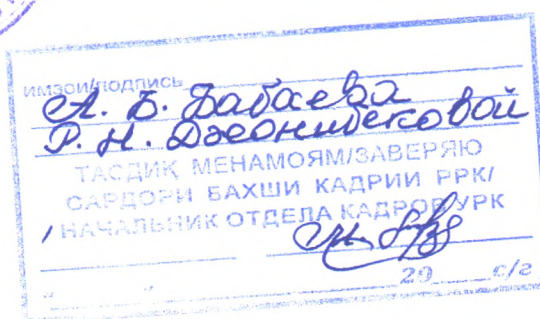 ИМЗОИ/ПОДПИСЬ
А. Б. Бабаева
Р. Н. Джонибековой
ТАСДИҚ МЕНАМОЯМ/ЗАВЕРЯЮ
САРДОРИ БАХШИ КАДРИИ РРК/
НАЧАЛЬНИК ОТДЕЛА КАДРОВ УРК
" " 20 с/г